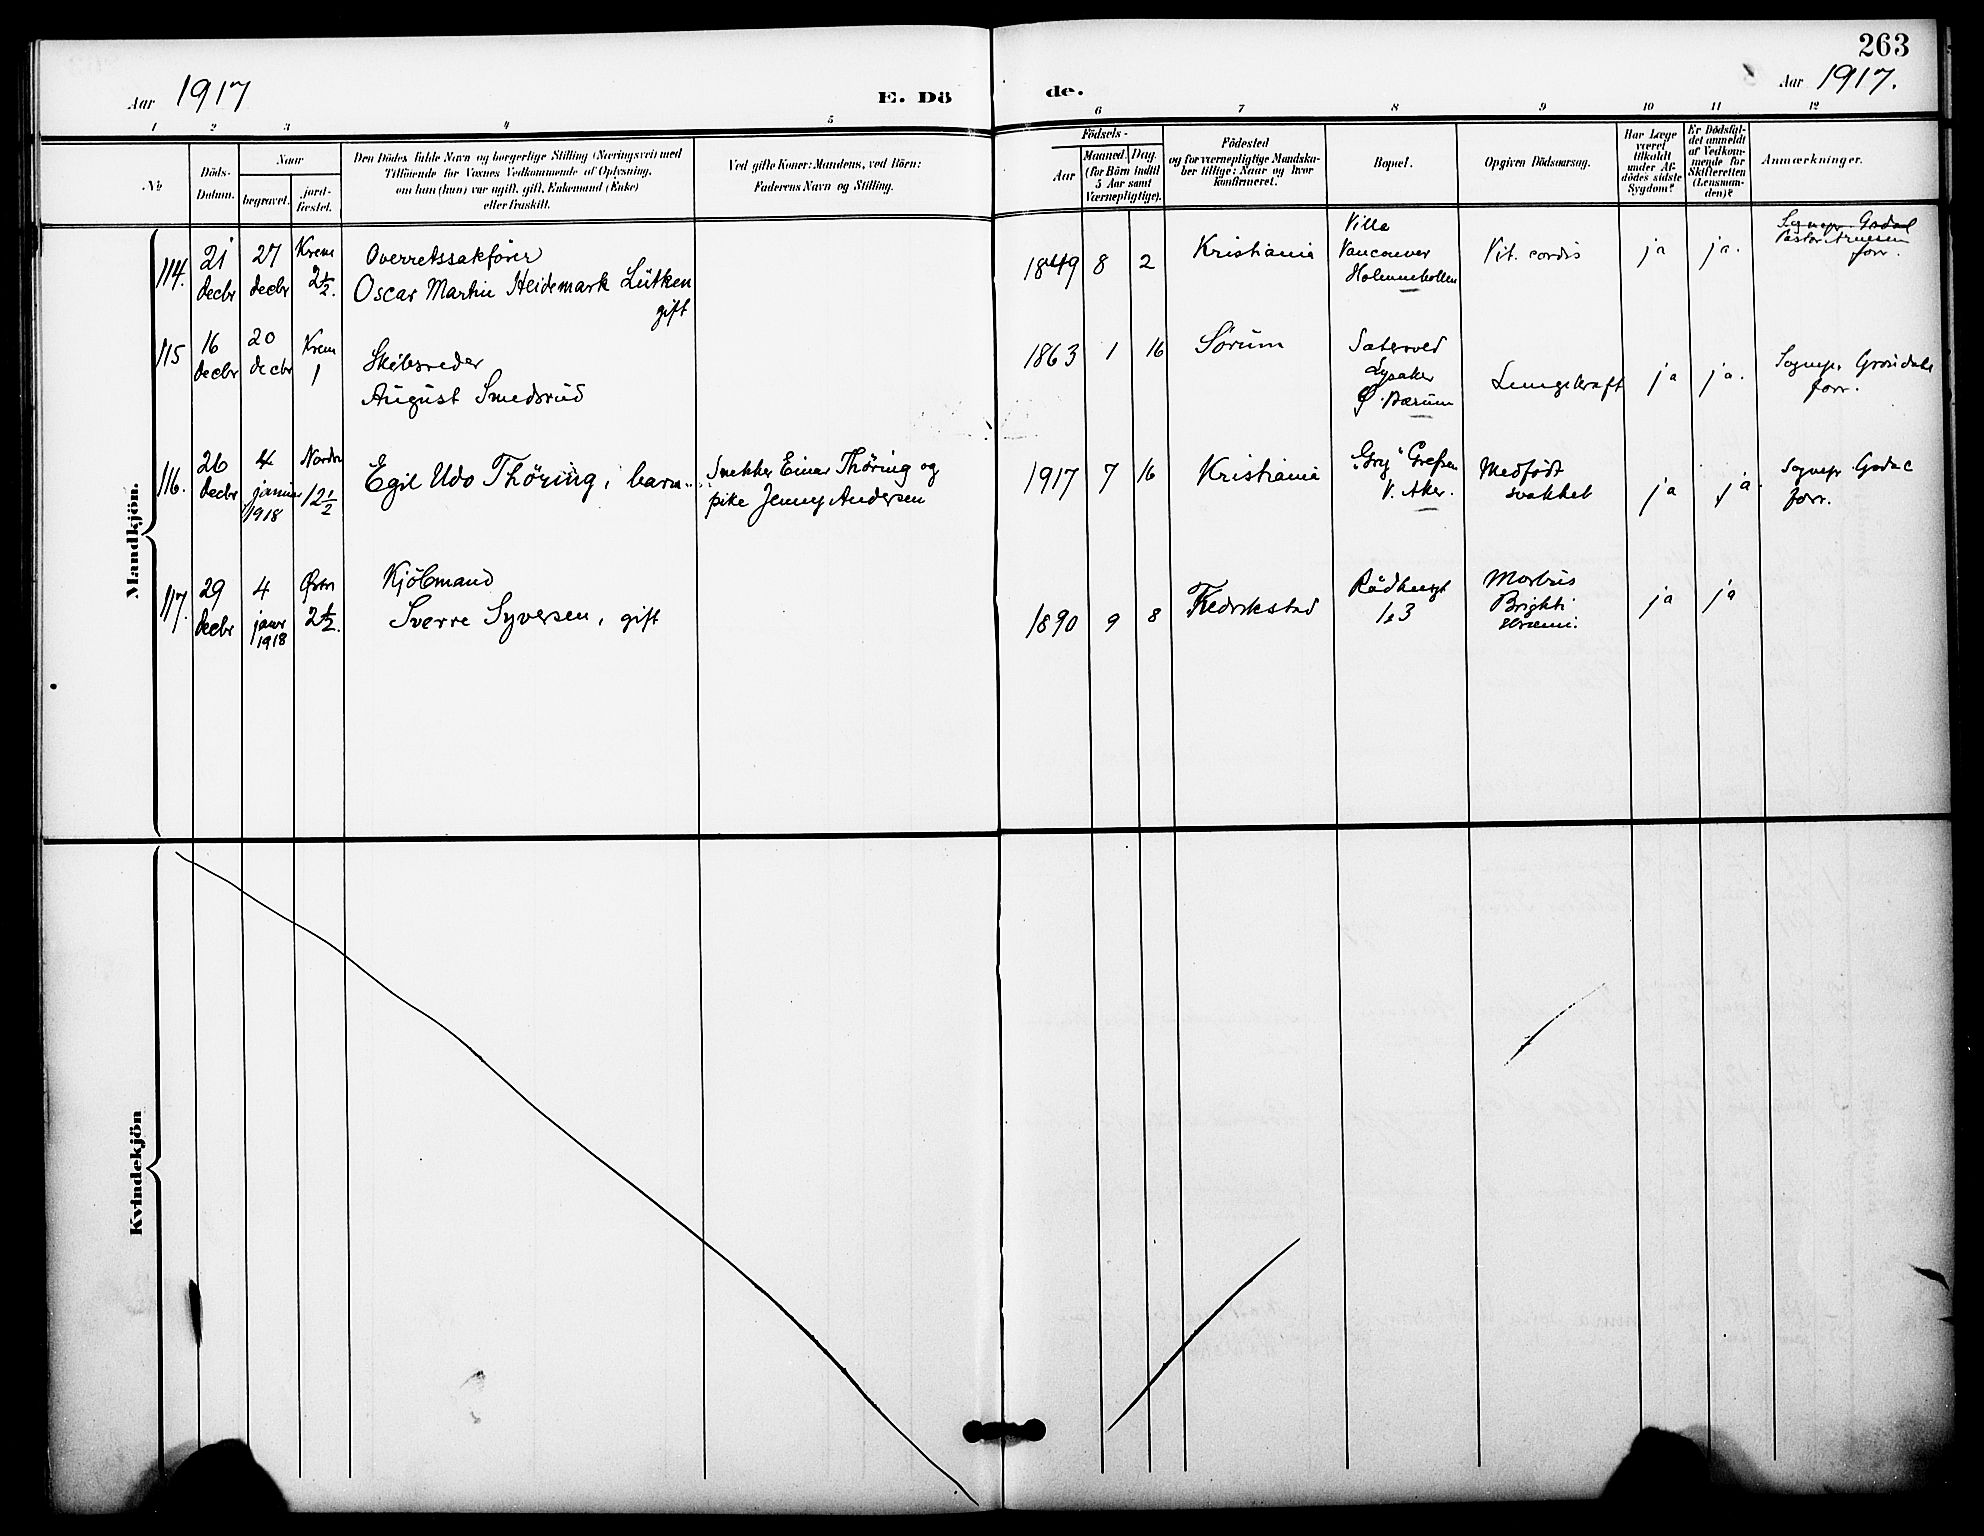 263
Aar 1917
E. Dö
de.
Aar 1917.
1 2 3 4 5 6 7 8 9 10 11 12
№
Döds-
Datum.
Naar
begravet.
jord-
fæstet.
Den Dödes fulde Navn og borgerlige Stilling (Næringsvei) med
Tilföiende for Voxnes Vedkommende af Oplysning,
om han (hun) var ugift, gift, Enkemand (Enke)
eller fraskilt.
Ved gifte Koner: Mandens, ved Börn:
Faderens Navn og Stilling.
Födsels-
Aar
Maaned. Dag.
(for Börn indtil
5 Aar samt
Værnepligtige).
Födested
og for værnepligtige Mandska-
ber tillige: Naar og hvor
konfirmeret.
Bopæl.
Opgiven Dödsaarsag.
Har Læge
været
tilkaldt
under Af-
dödes sidste
Sygdom?
Er Dödsfal-
det anmeldt
af Vedkom-
mende for
Skifteretten
(Lensman-
den)?
Anmærkninger.
Mandkjön.
114.
21
decbr
27
decbr
Krem
2½.
Overretssakfører
Oscar Martin Heidemark Lütken
gift
1849 8 2
Kristiania
Villa
Vancouver
Holmenkollen
Vit. cordis
ja
ja.
Sognepr. Gosdal
Pastor
forr.
115
16
decbr
20
decbr
Krem
1
Skibsreder
August Smedsrud
1863 1 16
Sørum
Lysaker
Ø. Bærum
Lungekræft
ja
ja.
Sognepr.
forr.
116.
26
decbr
4
januar
1918
Nordre
12½
Egil Udo Thöring, barn
Snekker Einar Thöring og
pike Jenny Andersen
1917 7 16
Kristiania
"Gry" Grefsen
V. Aker.
Medfödt
svakhet
ja
ja.
Sognepr.
forr.
117.
29
decbr
4
janr
1918
Østre
2½.
Kjöbmand
Sverre Syversen, gift
1890 9 8
Fredrikstad
13
Morbus
Brighti
ja
ja
Kvindekjön